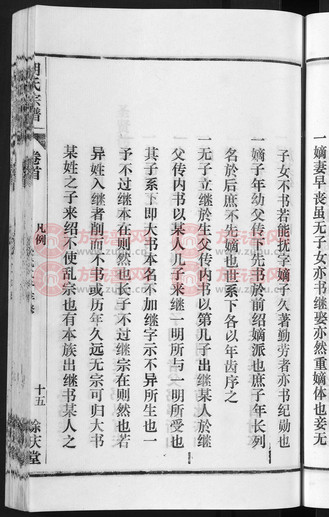 一嫡妻早丧虽无子女亦书继娶亦然重嫡体也妾无
子女不书若能抚字嫡子久著勤劳者亦书纪勋也
一嫡子年幼父传下先书於前绍嫡派也庶子年长列
名於后庶不先嫡也世系下各以年齿序之
一无子立继於生父传内书以第几子出继某人於继
父传内书以某人几子来继一明所与一明所受也
其子系下即大书本名不加继字示不异所生也一
子不过继本在则然也长子不过继宗在则然也若
异姓入继者削而不书或历年久远无宗可归大书
某姓之子来绍不使乱宗也有本族出继书某人之
胡氏宗谱
卷首
凡例
十五
余庆堂